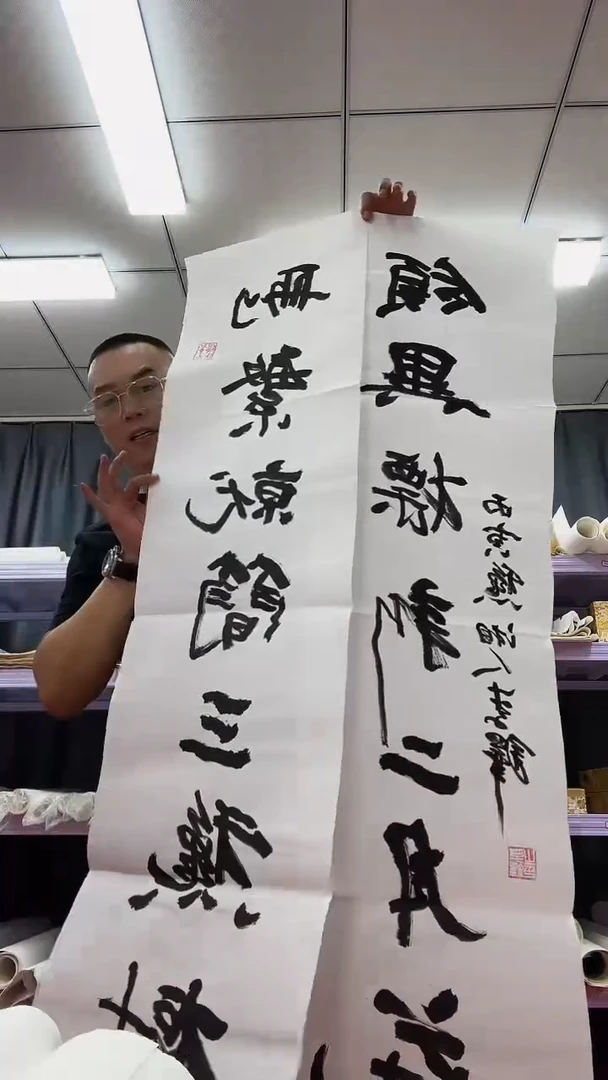 刪繁就簡三秋樹
領異標新二月花